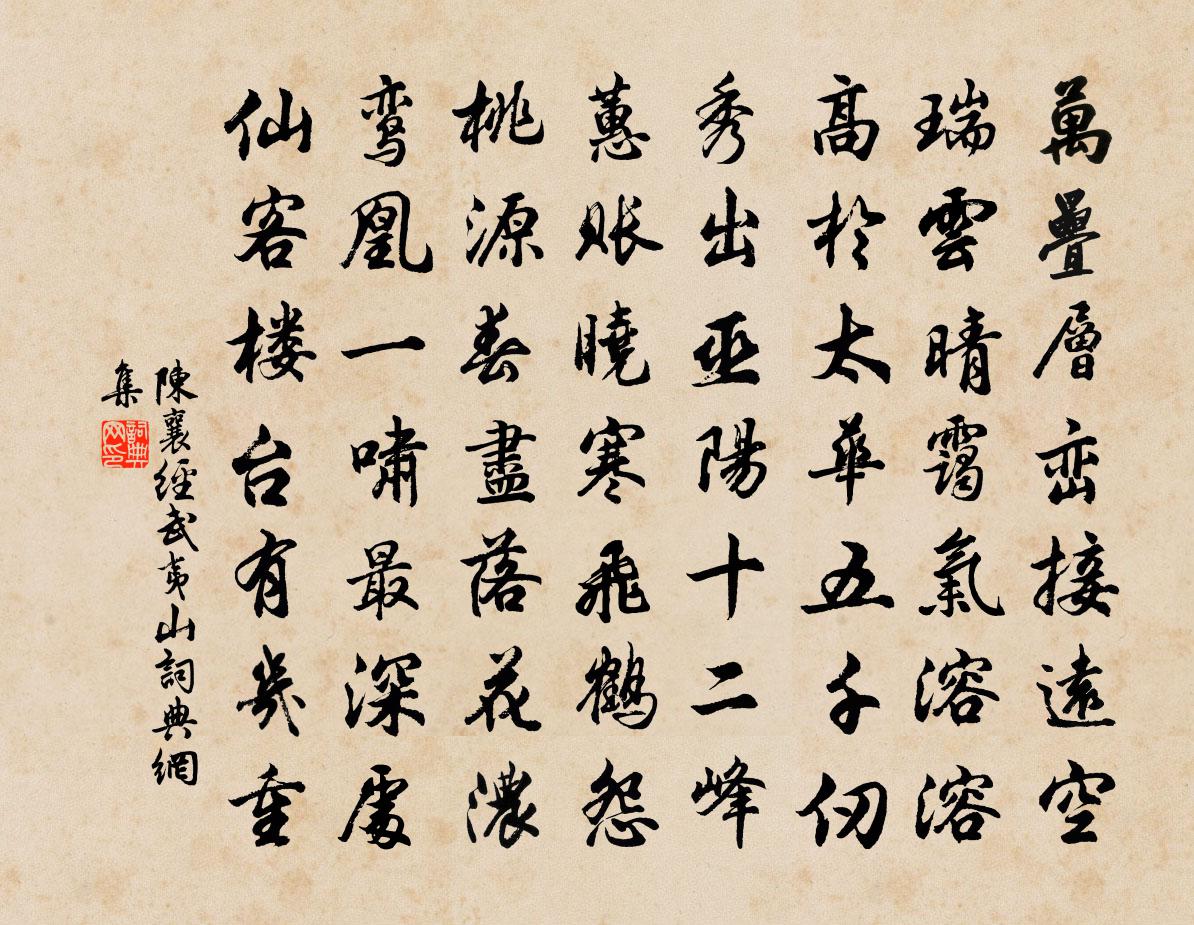 萬疊層峦接遠空
瑞雲晴靄氣溶溶
高於太華五千仞
秀出巫陽十二峰
蕙账曉寒飛鶴怨
桃源春盡落花濃
鸾凰一嘯最深處
仙客楼台有幾重
陳襄經武夷山詞典網
集
詞典
网印